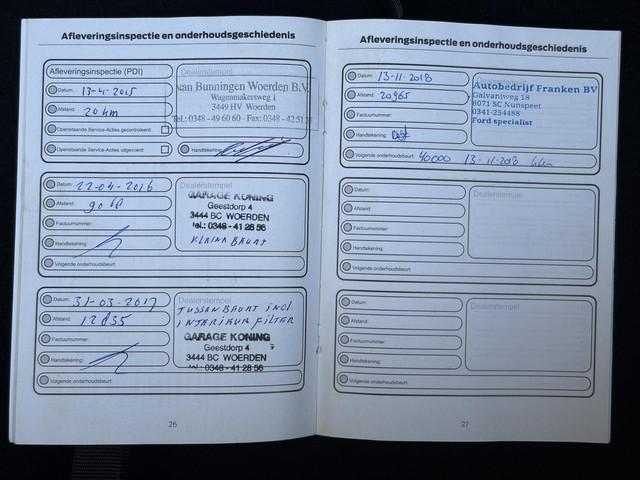 Afleveringsinspectie en onderhoudsgeschiedenis
Afleveringsinspectie (PDI)
Dealerstempel
Datum: 17-4-2015
Afstand: 20 km
Openstaande Service-Acties gecontroleerd:
Openstaande Service-Acties uitgevoerd:
van Bunningen Woerden B.V.
Wagenmakersweg 1
3449 HV Woerden
Tel.: 0348 - 49 60 60 - Fax: 0348 - 42 51
Handtekening:
Datum: 22-04-2016
Afstand:
Factuurnummer:
Handtekening:
Volgende onderhoudsbeurt:
Dealerstempel
GARAGE KONING
Geestdorp 4
3444 BC WOERDEN
tel.: 0348 - 41 28 56
KLEINE BEURT
Datum: 31-03-2017
Afstand: 12835
Factuurnummer:
Handtekening:
Volgende onderhoudsbeurt:
Dealerstempel
TUSSENBEURT incl.
INTERIEUR FILTER
GARAGE KONING
Geestdorp 4
3444 BC WOERDEN
tel.: 0348 - 41 28 56
26
Afleveringsinspectie en onderhoudsgeschiedenis
Datum: 13-11-2018
Afstand: 20965
Factuurnummer:
Handtekening:
Volgende onderhoudsbeurt: 40000 13-11-2018
Dealerstempel
Autobedrijf Franken BV
Galvaniweg 18
8071 SC Nunspeet
0341-254488
Ford specialist
Datum:
Afstand:
Factuurnummer:
Handtekening:
Volgende onderhoudsbeurt:
Dealerstempel
Datum:
Afstand:
Factuurnummer:
Handtekening:
Volgende onderhoudsbeurt:
Dealerstempel
27